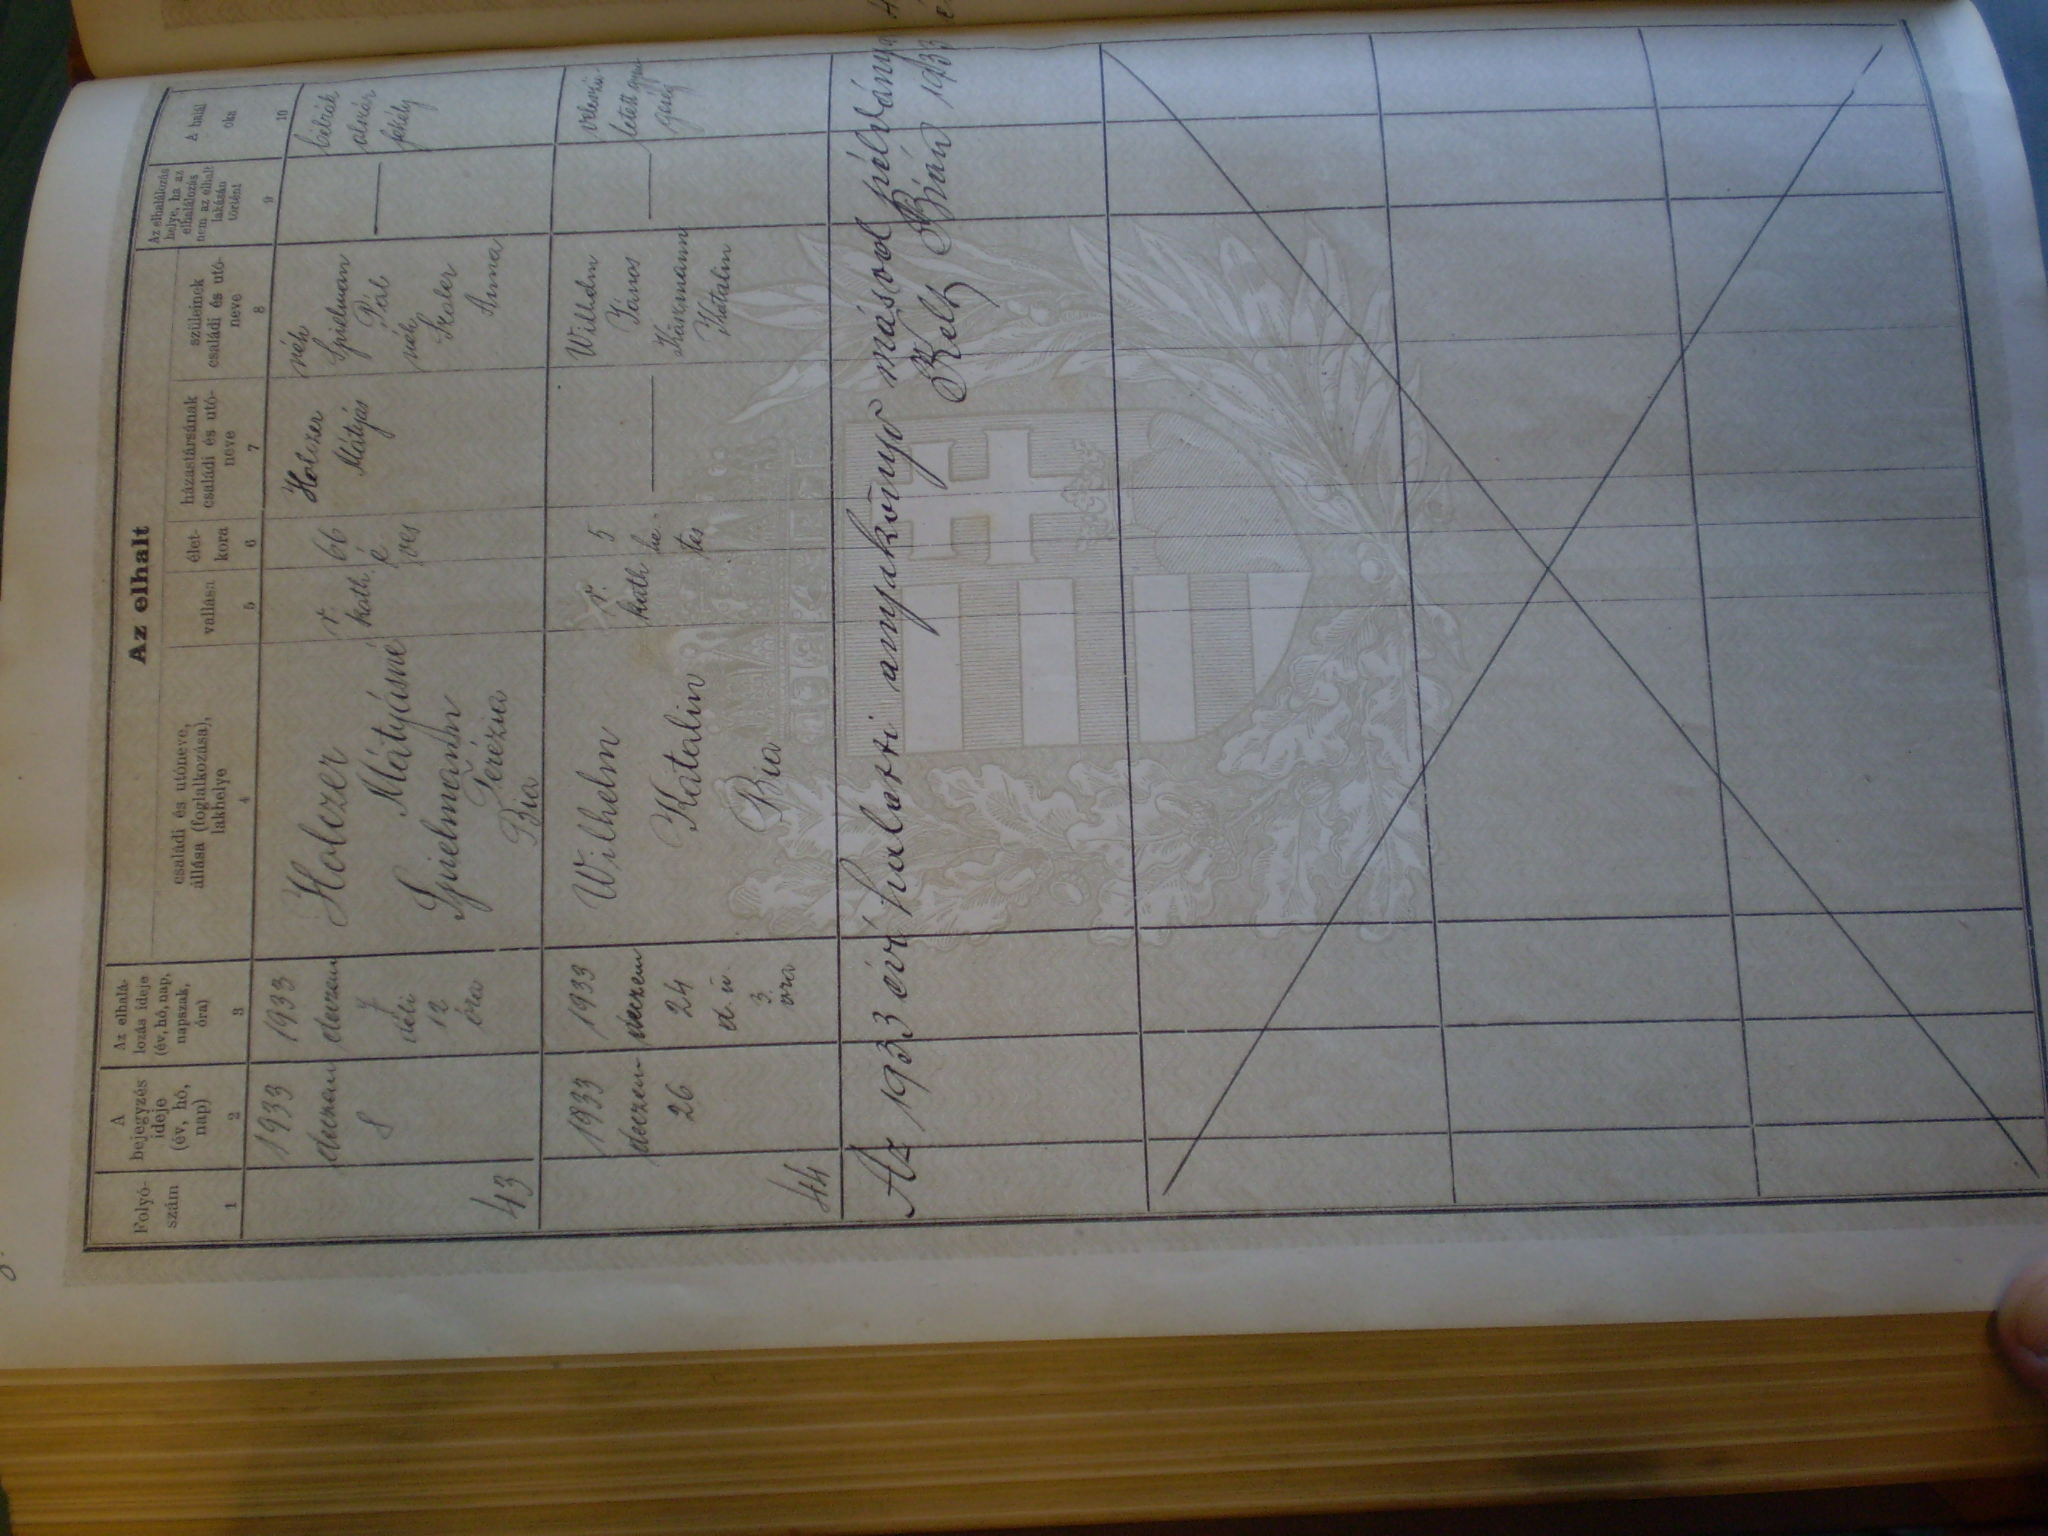 Az elhalt
Folyó-
szám
A
bejegyzés
ideje
(év, hó,
nap)
Az elhalá-
lozás ideje
(év, hó, nap,
napszak,
óra)
családi és utóneve,
állása (foglalkozása),
lakhelye
vallása
élet-
kora
házastársának
családi és utó-
neve
szüleinek
családi és utó-
neve
Az elhalálozás
helye, ha az
elhalálozás
nem az elhalt
lakásán
történt
A halál
oka
1
2
3
4
5
6
7
8
9
10
43
1933
deczem
8
1933
deczem
7
déli
12
óra
Holczer
Mátyásné
Spielmann
Terézia
Bia
r.
kath.
66
é
ves
Holczer
Mátyás
néh
Spielmann
Pál
néh
Szaler
Anna
fekély
44
1933
deczem-
26
1933
deczem
24
d. u.
3.
óra
Wilhelm
Katalin
Bia
r.
kath
5
he-
tes
Wilhelm
János
Krászmann
Katalin
veleszü-
letett gyen-
geség
Az 1933 évi halotti anyakönyv másod példánya
Kelt Bián 1933